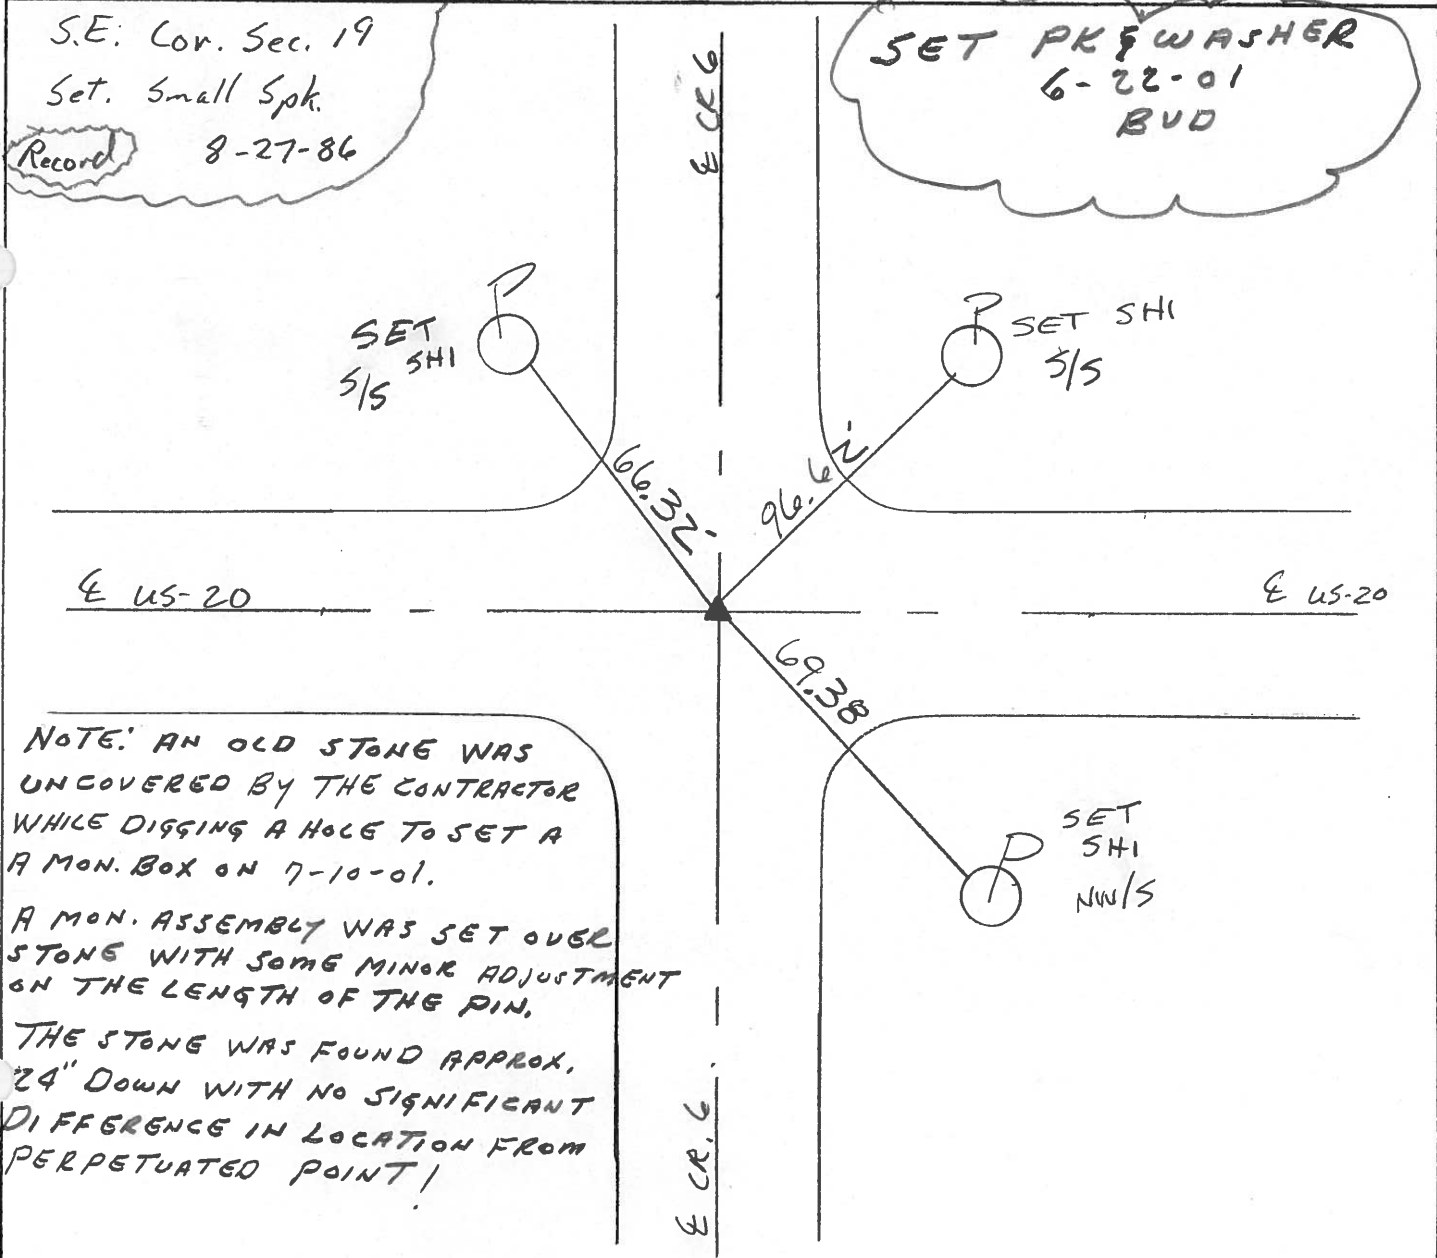 S.E. Cor. Sec. 19
Set. Small Spk.
Record 8-27-86
SET PK & WASHER
6-22-01
BUD
℄ CR. 6
P
SET
SHI
S/S
P
SET SHI
S/S
66.32'
96.62'
℄ US-20
℄ US-20
69.38
P
SET
SHI
NW/S
NOTE: AN OLD STONE WAS
UNCOVERED BY THE CONTRACTOR
WHILE DIGGING A HOLE TO SET A
A MON. BOX ON 7-10-01.
A MON. ASSEMBLY WAS SET OVER
STONE WITH SOME MINOR ADJUSTMENT
ON THE LENGTH OF THE PIN.
THE STONE WAS FOUND APPROX.
24" DOWN WITH NO SIGNIFICANT
DIFFERENCE IN LOCATION FROM
PERPETUATED POINT!
℄ CR. 6